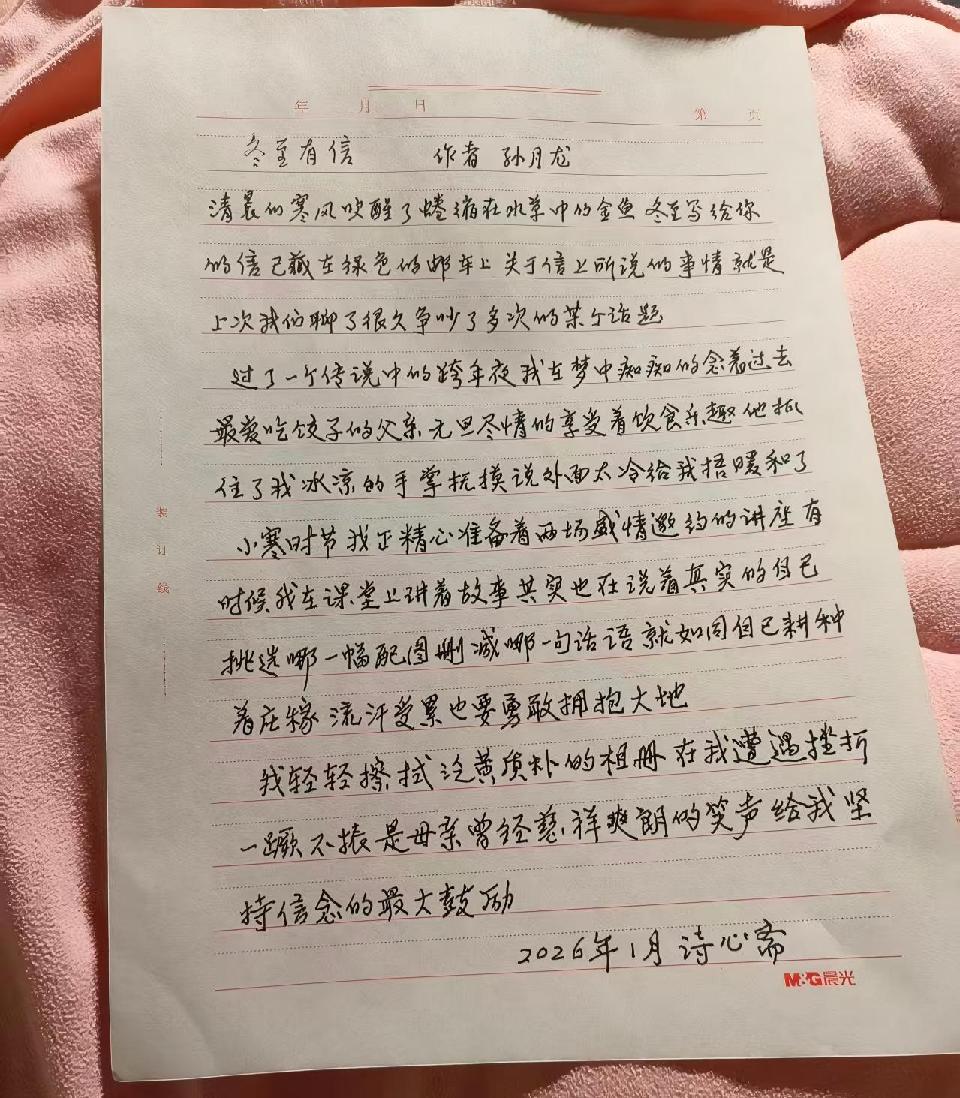 年 月 日 第 页
冬至有信 作者 孙月龙
清晨的寒风唤醒了蜷缩在水草中的金鱼 冬至写给你
的信已藏在绿色的邮车上 关于信上所说的事情就是
上次我们聊了很久争吵了多次的某个话题
过了一个传说中的跨年夜我在梦中痴痴的念着过去
最爱吃饺子的父亲 元旦尽情的享受着饮食乐趣他抓
住了我冰凉的手掌抚摸说外面太冷给我捂暖和了
小寒时节我正精心准备着两场盛情邀约的讲座有
时候我在课堂上讲着故事其实也在说着真实的自己
挑选哪一幅配图删减哪一句话语就如同自己耕种
着庄稼 流汗受累也要勇敢拥抱大地
我轻轻擦拭泛黄质朴的相册 在我遭遇挫折
一蹶不振是母亲曾经慈祥爽朗的笑声给我坚
持信念的最大鼓励
2026年1月 诗心斋
装订线
M&G晨光